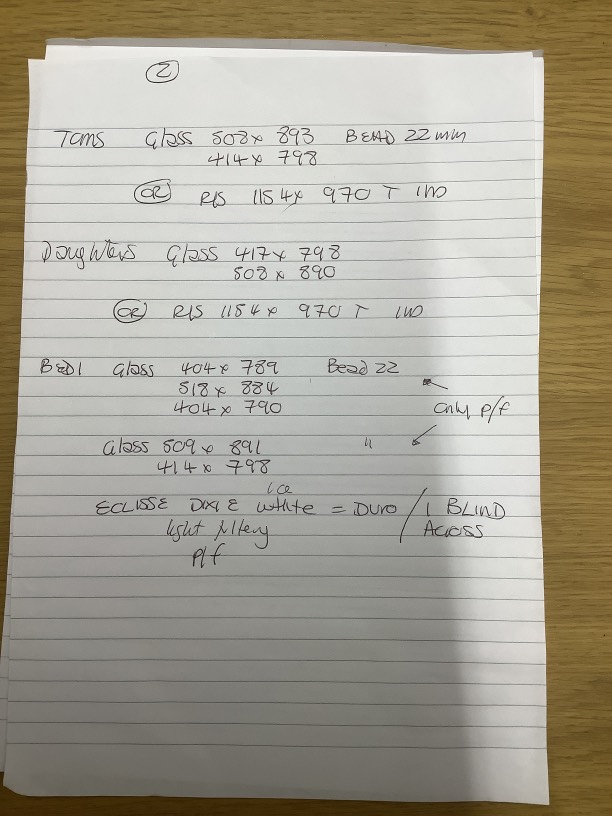 2
Toms Glass 508 x 893 BEAD 22 mm
414 x 798
OR R/S 1154 x 970 T IND
Daughters Glass 417 x 798
508 x 890
OR R/S 1154 x 970 T IND
BED1 Glass 404 x 789 Bead 22
518 x 884
404 x 790 only p/f
Glass 509 x 891 "
414 x 798
ice
ECLISSE DIXIE white = DUO / 1 BLIND
light filtery ACROSS
p/f